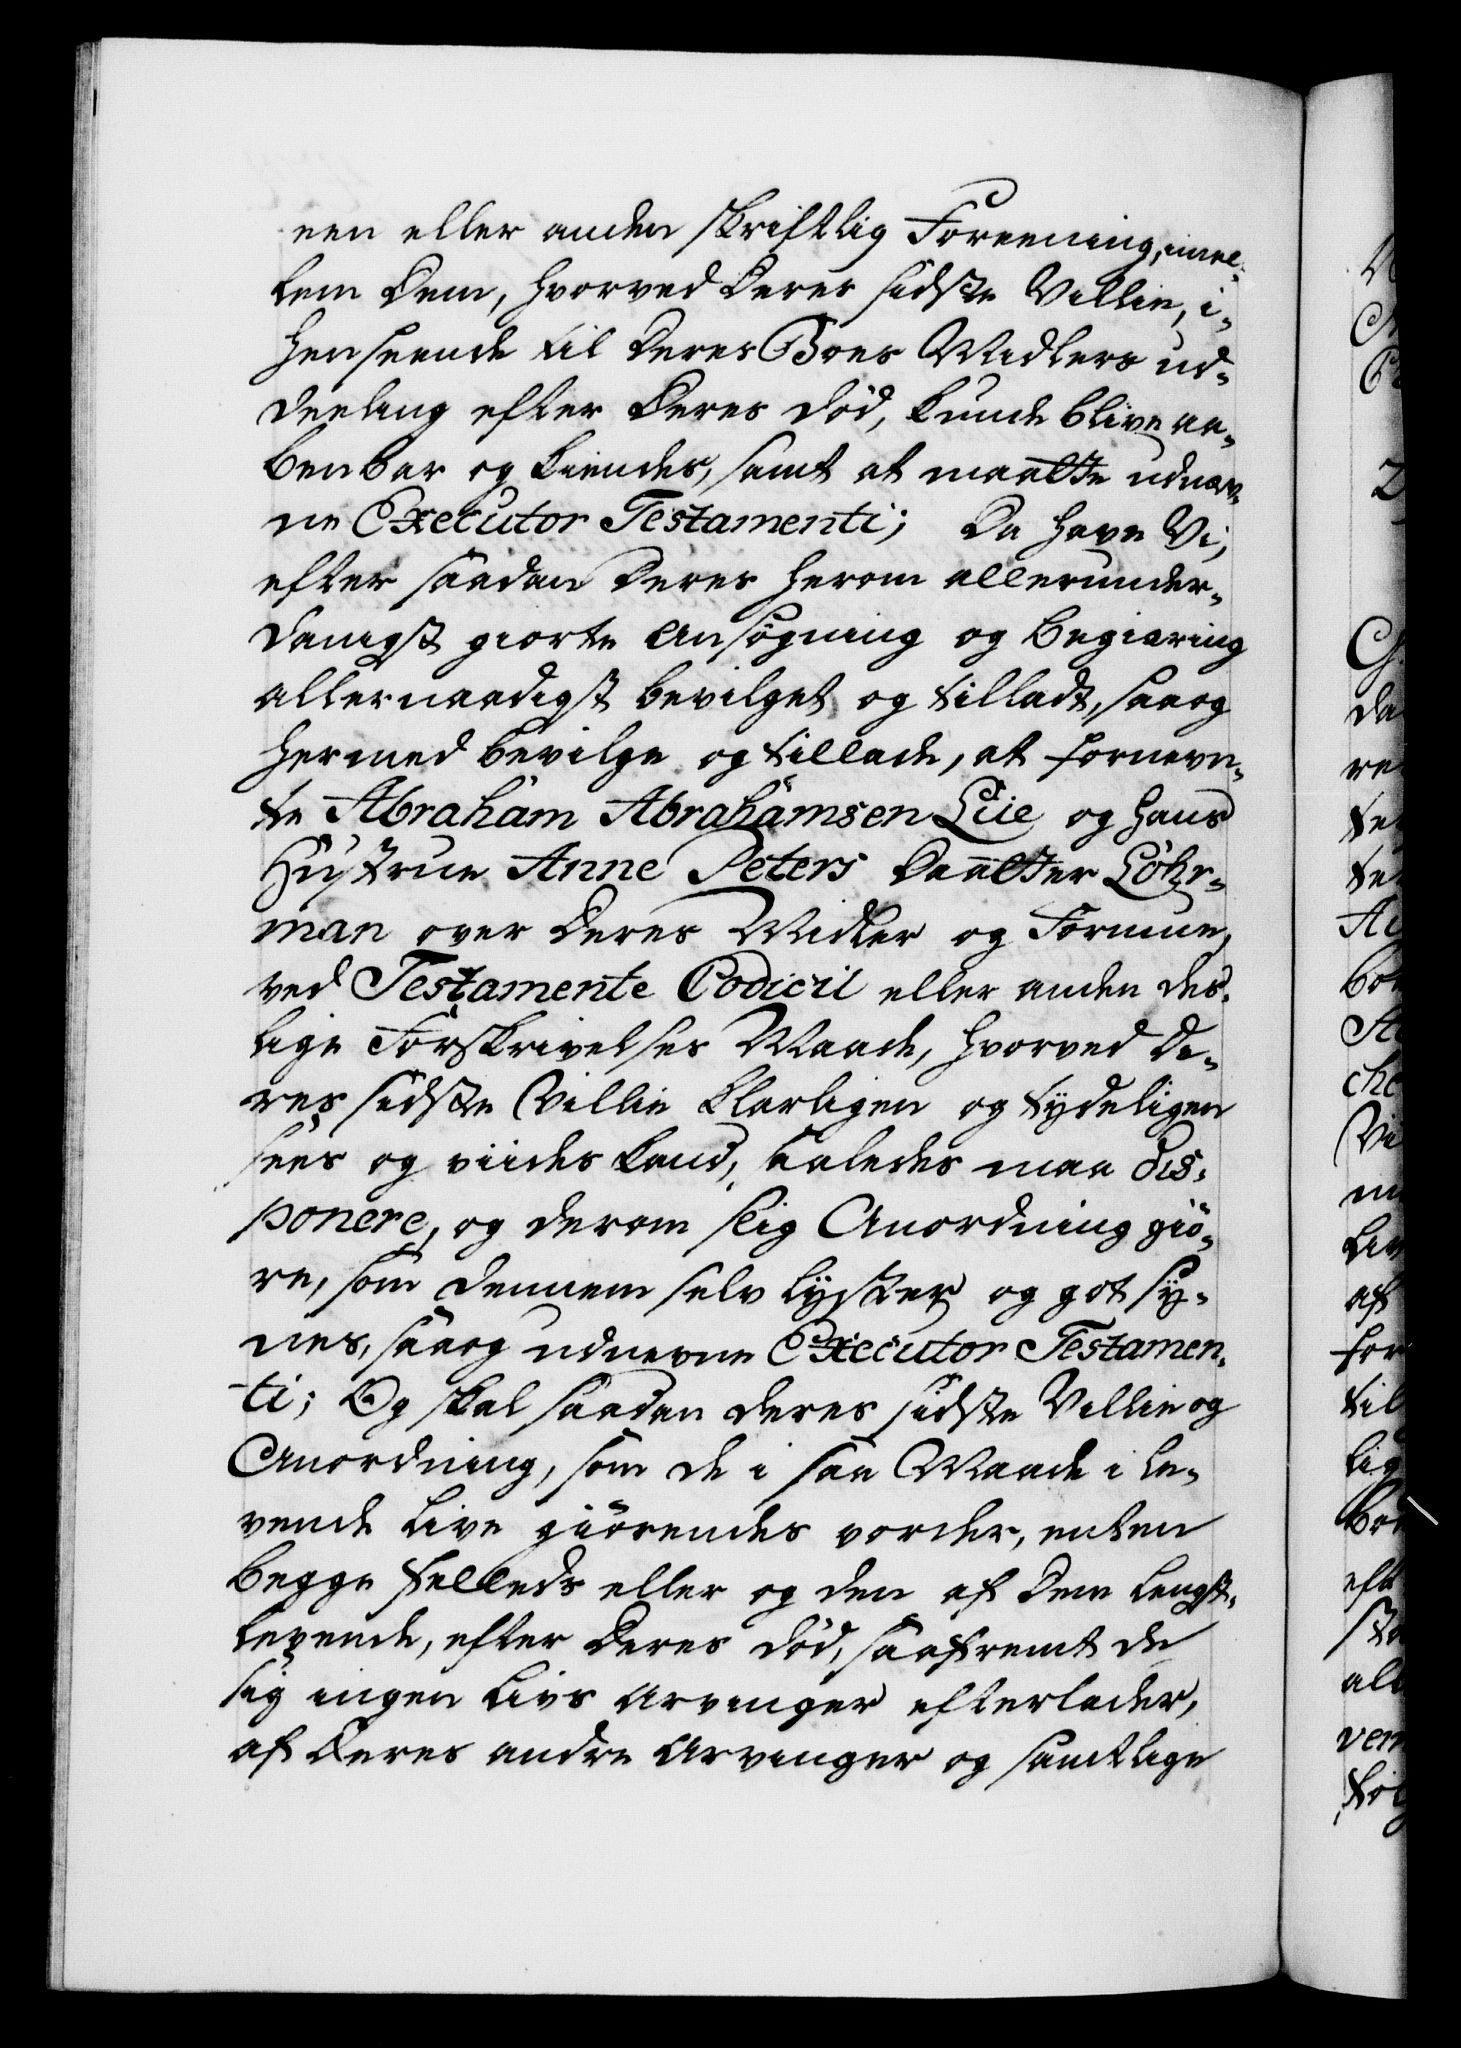 een eller anden skriftlig Foreening, imel-
lem Dem, hvorved Deres sidste Villie, i-
henseende til Deres Boes Midlers ud-
deeling efter Deres død, kunde blive aa-
benbar og kiendes, samt at maatte udnæv-
ne Executor Testamenti; Da have Vi,
efter saadan Deres herom allerunder-
danigst giorte Ansøgning og begiæring
allernaadigst bevilget og tilladt, saa og
hermed bevilge og tillade, at fornevn-
te Abraham Abrahamsen Lie og hans
Hustrue Anne Peters Daatter Löhr-
man over Deres Midler og Formue,
ved Testamente Codicil eller anden des-
lige Forskrivelses Maade, hvorved De-
res sidste Villie klarligen og tydeligen
sees og viides kand, saaledes maa dis-
ponere, og derom slig Anordning giø-
re, som dennem selv lyster og got sy-
nes, saa og udnevne Executor Testamen-
ti; Og skal saadan deres sidste Villie og
Anordning, som de i saa Maade i le-
vende Live giørendes vorder, enten
begge Selleds eller og den af Dem lengst-
levende, efter Deres død, saafremt de
sig ingen Livs Arvinger efterlader,
af Deres andre Arvinger og samtlige